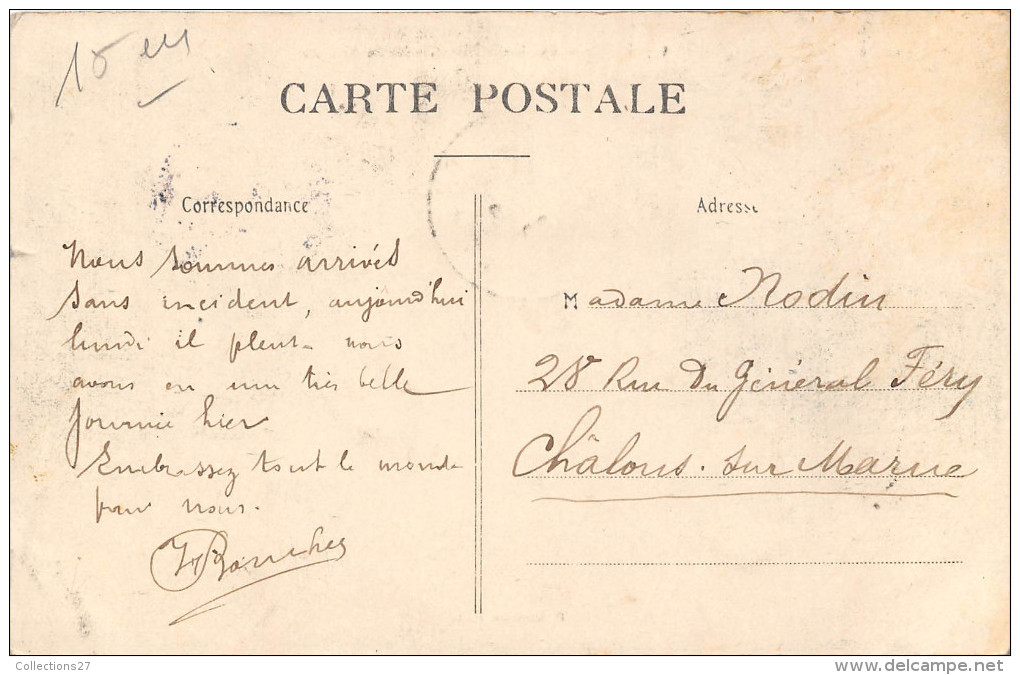 CARTE POSTALE
Correspondance
Nous sommes arrivés
sans incident, aujourd'hui
lundi il pleut nous
avons eu une très belle
journée hier
Embrassez tout le monde
pour nous.
Adresse
Madame Nodin
28 Rue du Général Féry
Châlons. sur Marne
Collections27
delcampe.net